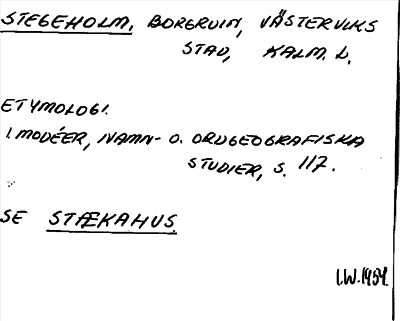 STEGEHOLM, BORGRUIN, VÄSTERVIKS
STAD, KALM. L.
ETYMOLOGI.
I. MODÉER, NAMN- O. ORDGEOGRAFISKA
STUDIER, S. 117.
SE STÆKAHUS.
I.W. 1954.